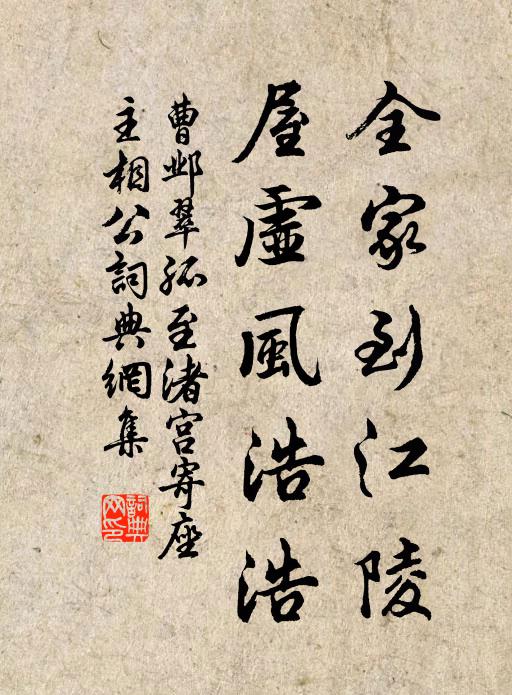 全家到江陵
屋虛風浩浩
曹邺翠孤至渚宮寄座
主相公詞典網集
詞典
网印